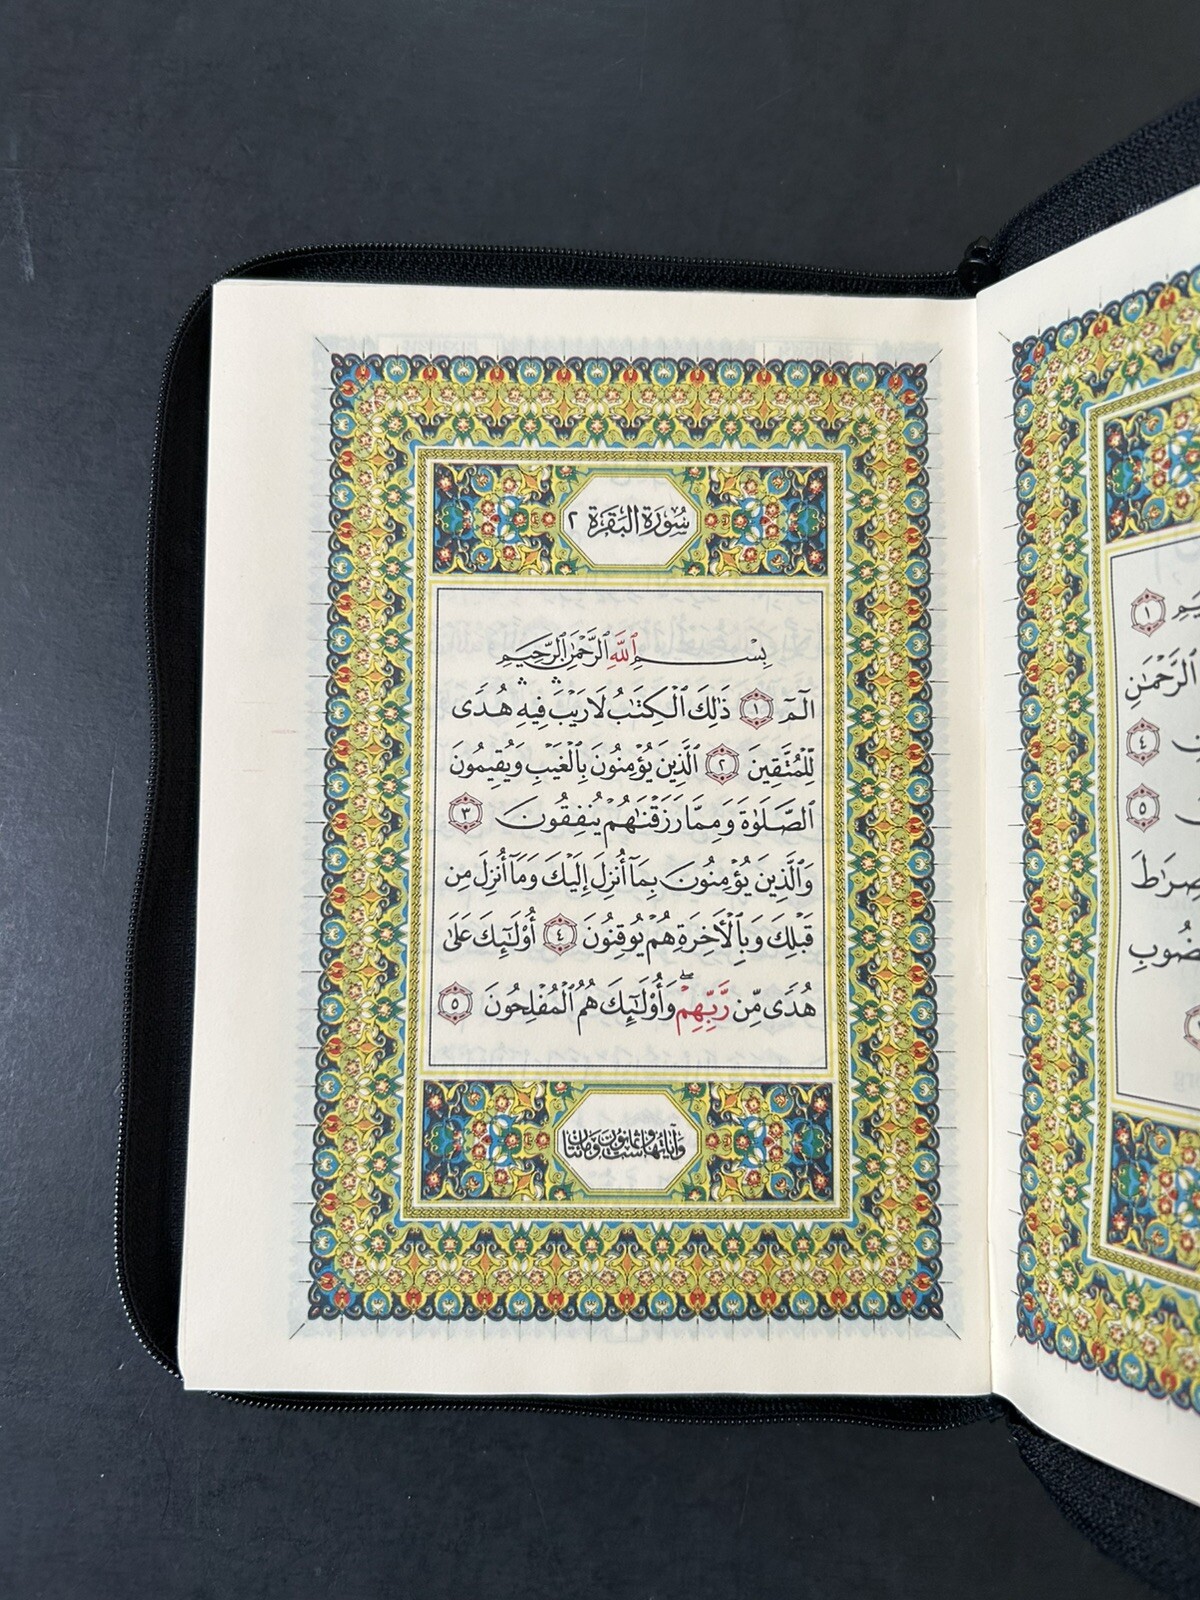 سُورَةُ البَقَرَةِ ٢
بِسْمِ ٱللَّهِ ٱلرَّحْمَٰنِ ٱلرَّحِيمِ
الٓمٓ ١ ذَٰلِكَ ٱلْكِتَٰبُ لَا رَيْبَ ۛ فِيهِ ۛ هُدًى
لِّلْمُتَّقِينَ ٢ ٱلَّذِينَ يُؤْمِنُونَ بِٱلْغَيْبِ وَيُقِيمُونَ
ٱلصَّلَوٰةَ وَمِمَّا رَزَقْنَٰهُمْ يُنفِقُونَ ٣
وَٱلَّذِينَ يُؤْمِنُونَ بِمَآ أُنزِلَ إِلَيْكَ وَمَآ أُنزِلَ مِن
قَبْلِكَ وَبِٱلْأَخِرَةِ هُمْ يُوقِنُونَ ٤ أُوْلَٰٓئِكَ عَلَىٰ
هُدًى مِّن رَّبِّهِمْ ۖ وَأُوْلَٰٓئِكَ هُمُ ٱلْمُفْلِحُونَ ٥
وَآيَاتُهَا سِتٌّ وَثَمَانُونَ وَمِائَتَانِ
١
ٱلرَّحْمَٰنِ
٤
٥
صِرَٰطَ